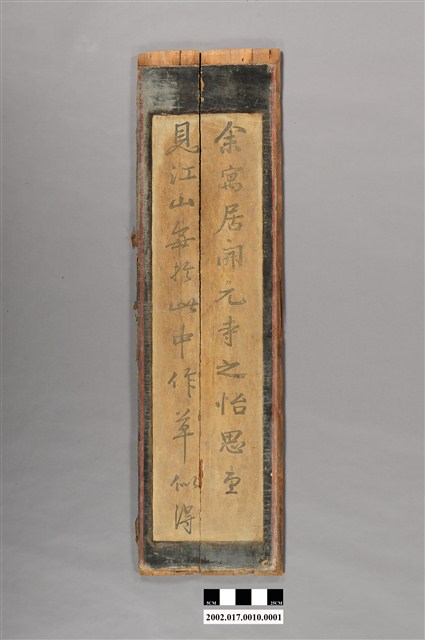 余寓居開元寺之怡思堂
見江山每於此中作草似得
5CM
25CM
2002.017.0010.0001